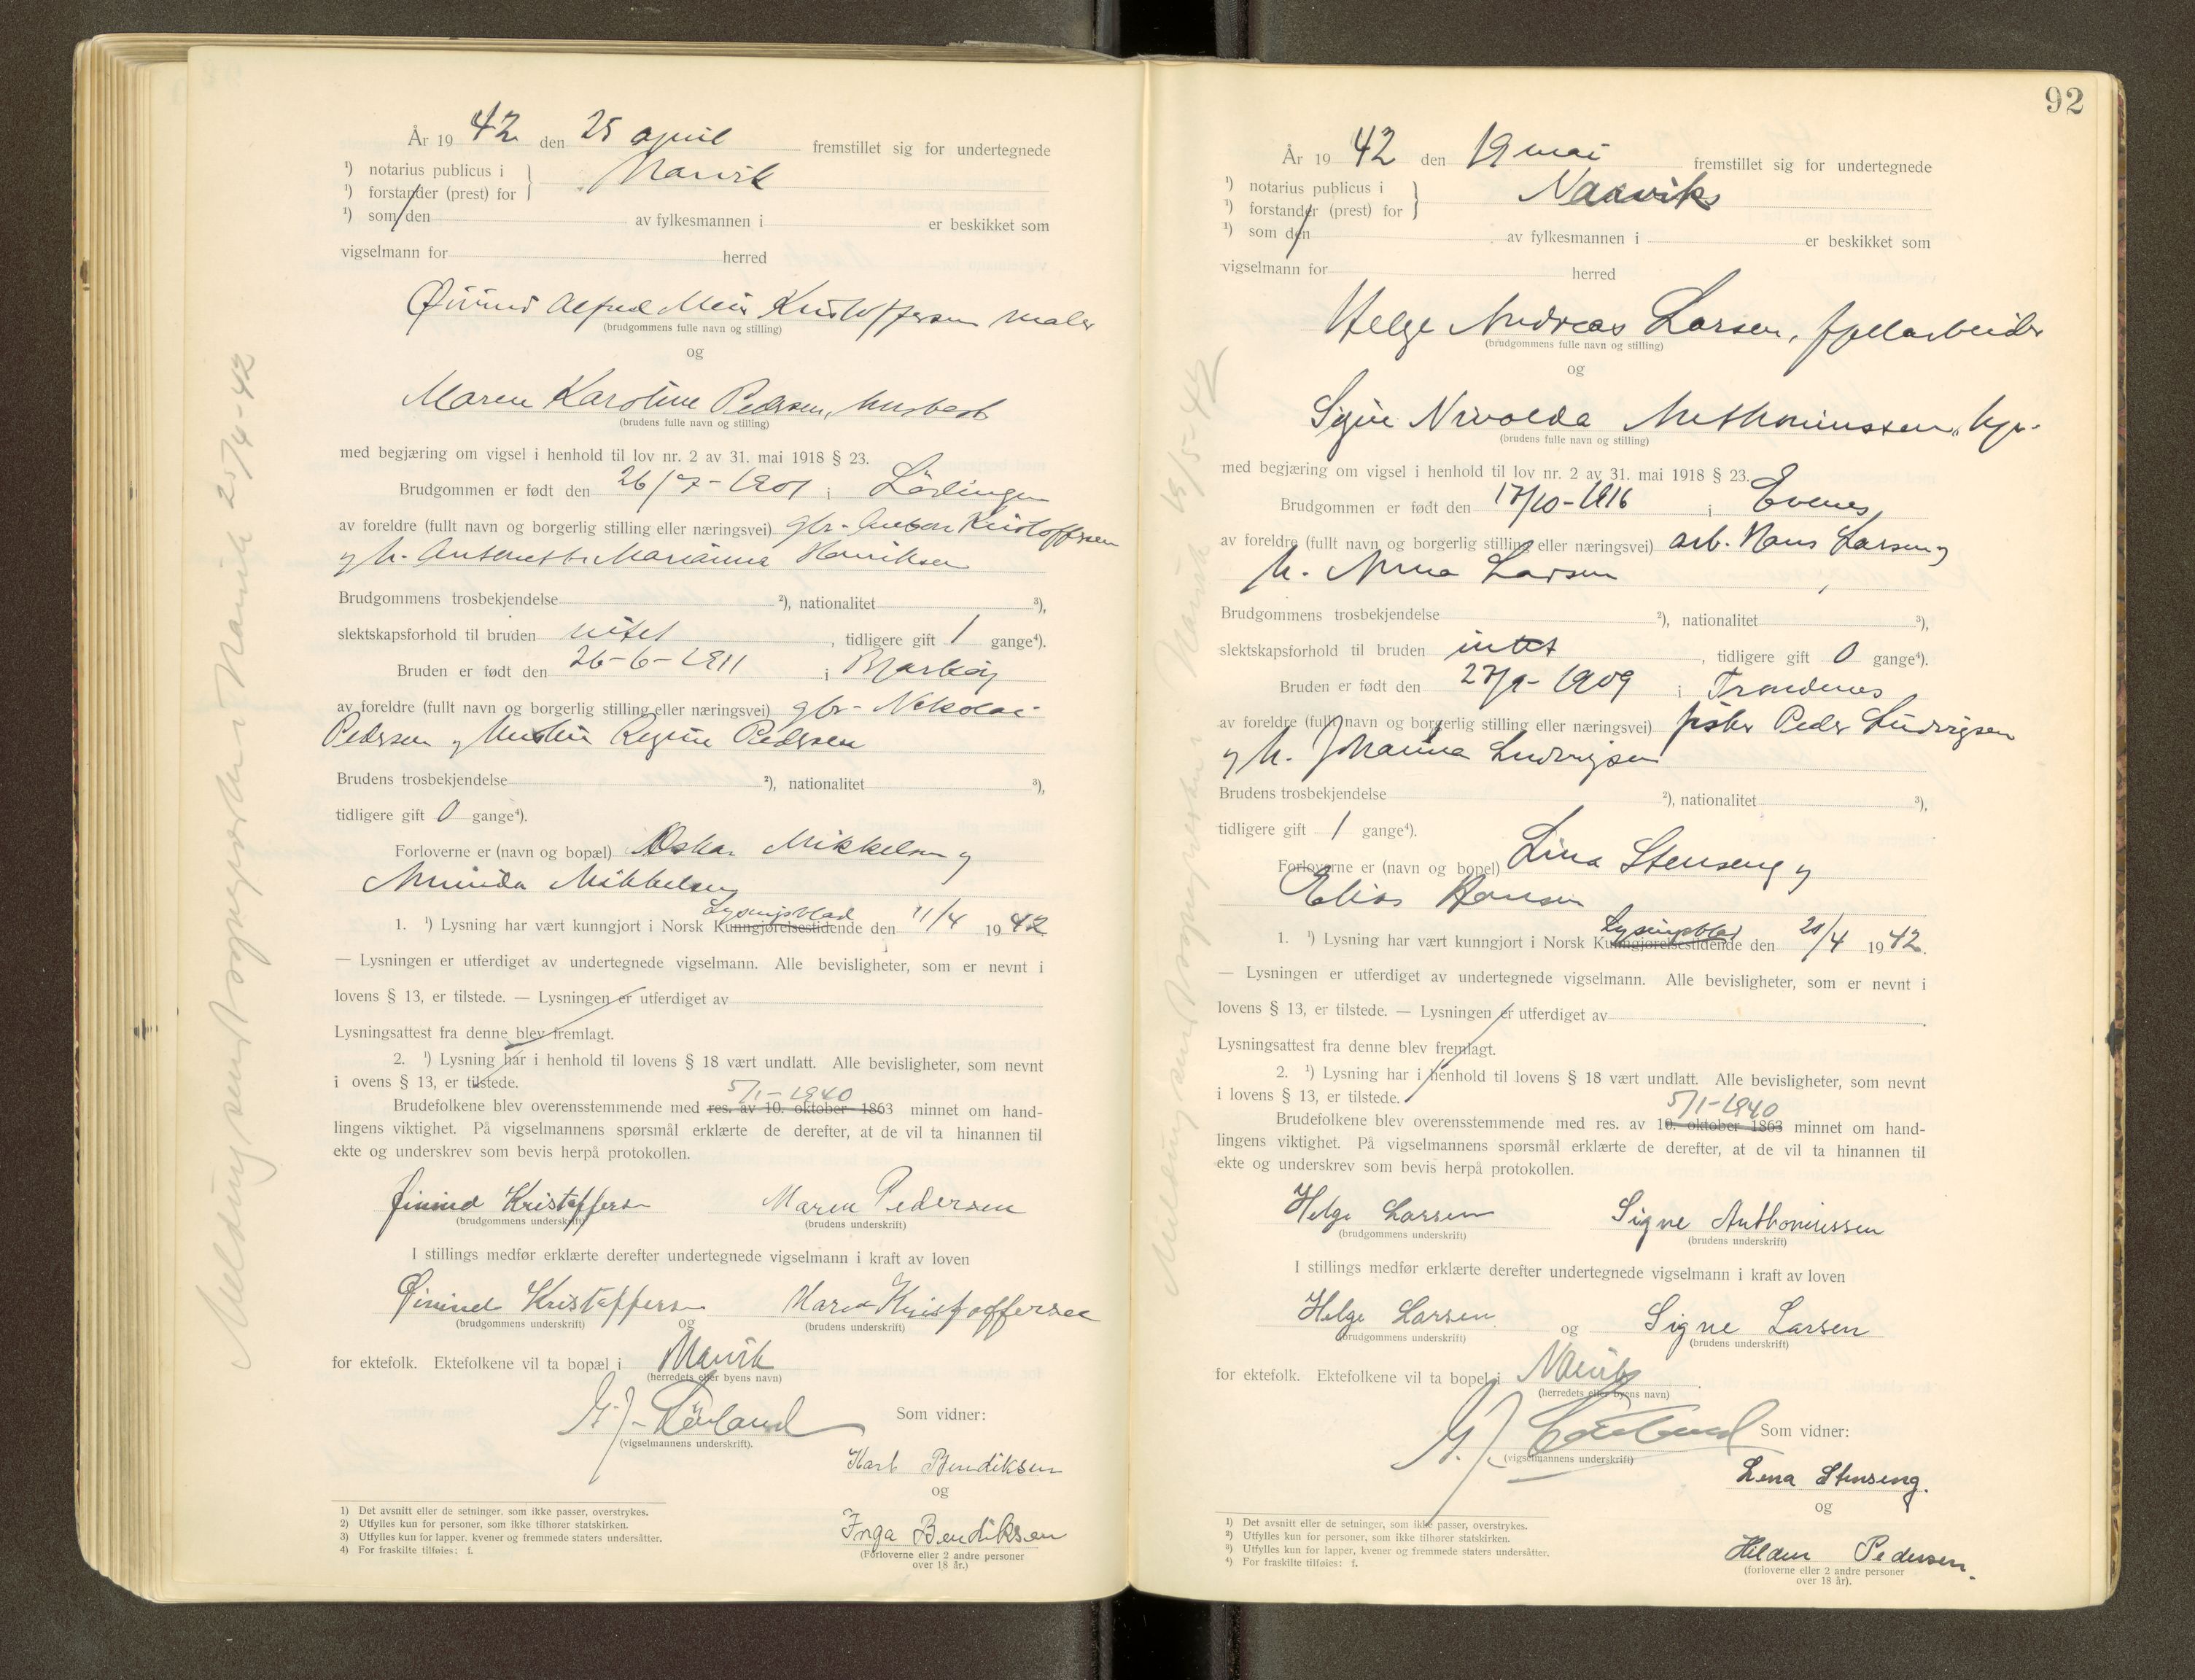 År 19 42 den 25 april fremstillet sig for undertegnede
¹) notarius publicus i
¹) forstander (prest) for } Narvik
¹) som den av fylkesmannen i er beskikket som
vigselmann for herred
Øivind Alfred Kristoffersen maler
(brudgommens fulle navn og stilling)
og
Maren Karoline Pedersen, husbest
(brudens fulle navn og stilling)
med begjæring om vigsel i henhold til lov nr. 2 av 31. mai 1918 § 23.
Brudgommen er født den 26/7-1901 i Lødingen
av foreldre (fullt navn og borgerlig stilling eller næringsvei) gbr. Kristoffersen
og h. Marianna Henriksen
Brudgommens trosbekjendelse ²), nationalitet ³),
slektskapsforhold til bruden intet , tidligere gift 1 gange⁴).
Bruden er født den 26-6-1911 i Bjarkøy
av foreldre (fullt navn og borgerlig stilling eller næringsvei) gbr- Nikolai
Pedersen og hustru Regine Pedersen
Brudens trosbekjendelse ²), nationalitet ³),
tidligere gift 0 gange⁴).
Forloverne er (navn og bopæl) Oskar Mikkelsen og
Mikkelsen
Lysningsblad
1. ¹) Lysning har vært kunngjort i Norsk Kunngjørelsestidende den 11/4 1942
— Lysningen er utferdiget av undertegnede vigselmann. Alle bevisligheter, som er nevnt i
lovens § 13, er tilstede. — Lysningen er utferdiget av
Lysningsattest fra denne blev fremlagt.
2. ¹) Lysning har i henhold til lovens § 18 vært undlatt. Alle bevisligheter, som nevnt
i ovens § 13, er tilstede.
5/1-1940
Brudefolkene blev overensstemmende med res. av 10. oktober 1863 minnet om hand-
lingens viktighet. På vigselmannens spørsmål erklærte de derefter, at de vil ta hinannen til
ekte og underskrev som bevis herpå protokollen.
Øivind Kristoffersen Maren Pedersen
(brudgommens underskrift) (brudens underskrift)
I stillings medfør erklærte derefter undertegnede vigselmann i kraft av loven
Øivind Kristoffersen Maren Kristoffersen
(brudgommens underskrift) og (brudens underskrift)
for ektefolk. Ektefolkene vil ta bopæl i Narvik
(herredets eller byens navn)
(vigselmannens underskrift).
Som vidner:
Karl Bendiksen
og
Inga Bendiksen
(Forloverne eller 2 andre personer
over 18 år.)
1) Det avsnitt eller de setninger, som ikke passer, overstrykes.
2) Utfylles kun for personer, som ikke tilhører statskirken.
3) Utfylles kun for lapper, kvener og fremmede staters undersåtter.
4) For fraskilte tilføies: f.
Melding sendt sognepresten i Narvik 25/4-42
92
År 19 42 den 19 mai fremstillet sig for undertegnede
¹) notarius publicus i
¹) forstander (prest) for } Narvik
¹) som den av fylkesmannen i er beskikket som
vigselmann for herred
Helge Andreas Larsen, fjellarbeider
(brudgommens fulle navn og stilling)
og
Signe Anthoniussen,
(brudens fulle navn og stilling)
med begjæring om vigsel i henhold til lov nr. 2 av 31. mai 1918 § 23.
Brudgommen er født den 17/10-1916 i Evenes
av foreldre (fullt navn og borgerlig stilling eller næringsvei) arb. Hans Larsen og
h. Anna Larsen
Brudgommens trosbekjendelse ²), nationalitet ³),
slektskapsforhold til bruden intet , tidligere gift 0 gange⁴).
Bruden er født den 27/9-1909 i Trondenes
av foreldre (fullt navn og borgerlig stilling eller næringsvei) fisker Peder Ludvigsen
og h. Johanna Ludvigsen
Brudens trosbekjendelse ²), nationalitet ³),
tidligere gift 1 gange⁴).
Forloverne er (navn og bopel) Lina Stenseng og
Elias Hansen
Lysningsblad
1. ¹) Lysning har vært kunngjort i Norsk Kunngjørelsestidende den 20/4 1942.
— Lysningen er utferdiget av undertegnede vigselmann. Alle bevisligheter, som er nevnt i
lovens § 13, er tilstede. — Lysningen er utferdiget av
Lysningsattest fra denne blev fremlagt.
2. ¹) Lysning har i henhold til lovens § 18 vært undlatt. Alle bevisligheter, som nevnt
i lovens § 13, er tilstede.
5/1-1940
Brudefolkene blev overensstemmende med res. av 10. oktober 1863 minnet om hand-
lingens viktighet. På vigselmannens spørsmål erklærte de derefter, at de vil ta hinannen til
ekte og underskrev som bevis herpå protokollen.
Helge Larsen Signe Anthoniussen
(brudgommens underskrift) (brudens underskrift)
I stillings medfør erklærte derefter undertegnede vigselmann i kraft av loven
Helge Larsen og Signe Larsen
(brudgommens underskrift) (brudens underskrift)
for ektefolk. Ektefolkene vil ta bopel i Narvik
(herredets eller byens navn)
(vigselmannens underskrift)
Som vidner:
Lina Stenseng.
og
Pedersen.
(forloverne eller 2 andre personer
over 18 år).
¹) Det avsnitt eller de setninger, som ikke passer, overstrykes.
²) Utfylles kun for personer, som ikke tilhører statskirken.
³) Utfylles kun for lapper, kvener og fremmede staters undersåtter.
⁴) For fraskilte tilføies: f.
Melding sendt sognepresten i Narvik 19/5-42